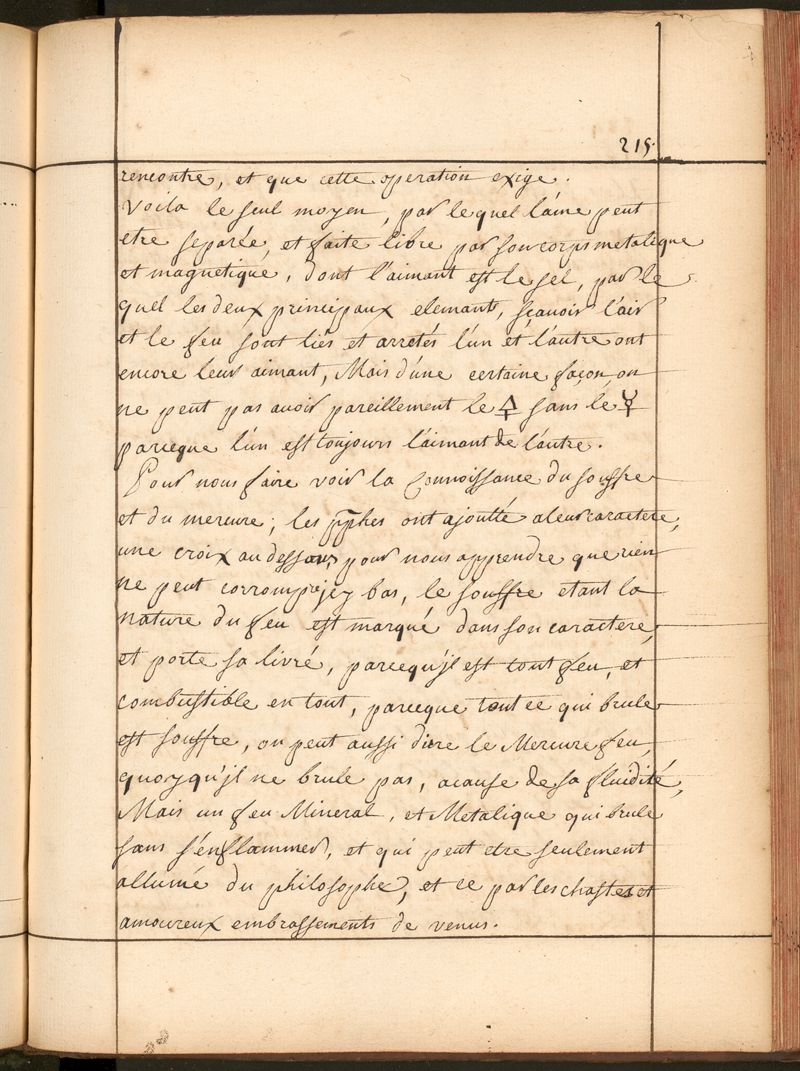 215.
rencontre, et que cette operation exige.
Voila le seul moyen, par lequel l'ame peut
etre separée, et faite libre par son corps metalique
et magnetique, dont l'aimant est le sel, par le
quel les deux principaux elemants, sçavoir l'air
et le feu sont liés et arretés l'un et l'autre ont
encore leur aimant, Mais d'une certaine façon, on
ne peut pas avoir pareillement le 🜍 sans le ☿
parceque l'un est toujours l'aimant de l'autre.
Pour nous faire voir la Connoissance du souffre
et du mercure; les pphes ont ajoutté a leur caractere,
une croix au dessous pour nous apprendre que rien
ne peut corrompre jcy bas, le souffre etant la
nature du feu est marqué dans son caractere,
et porte sa livré, parcequ'jl est tout feu, et
combustible en tout, parceque tout ce qui brule
est souffre, on peut aussi dire le Mercure feu,
quoyqu'jl ne brule pas, acause de sa fluidité,
Mais un feu Mineral, et Metalique qui brule
sans s'enflammer, et qui peut etre seulement
allumé du philosophe, et ce par les chastes et
amoureux embrassements de venus.